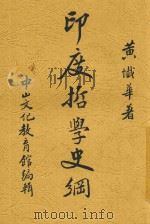 黄懺華著
印度哲學史綱
中山文化教育館編輯